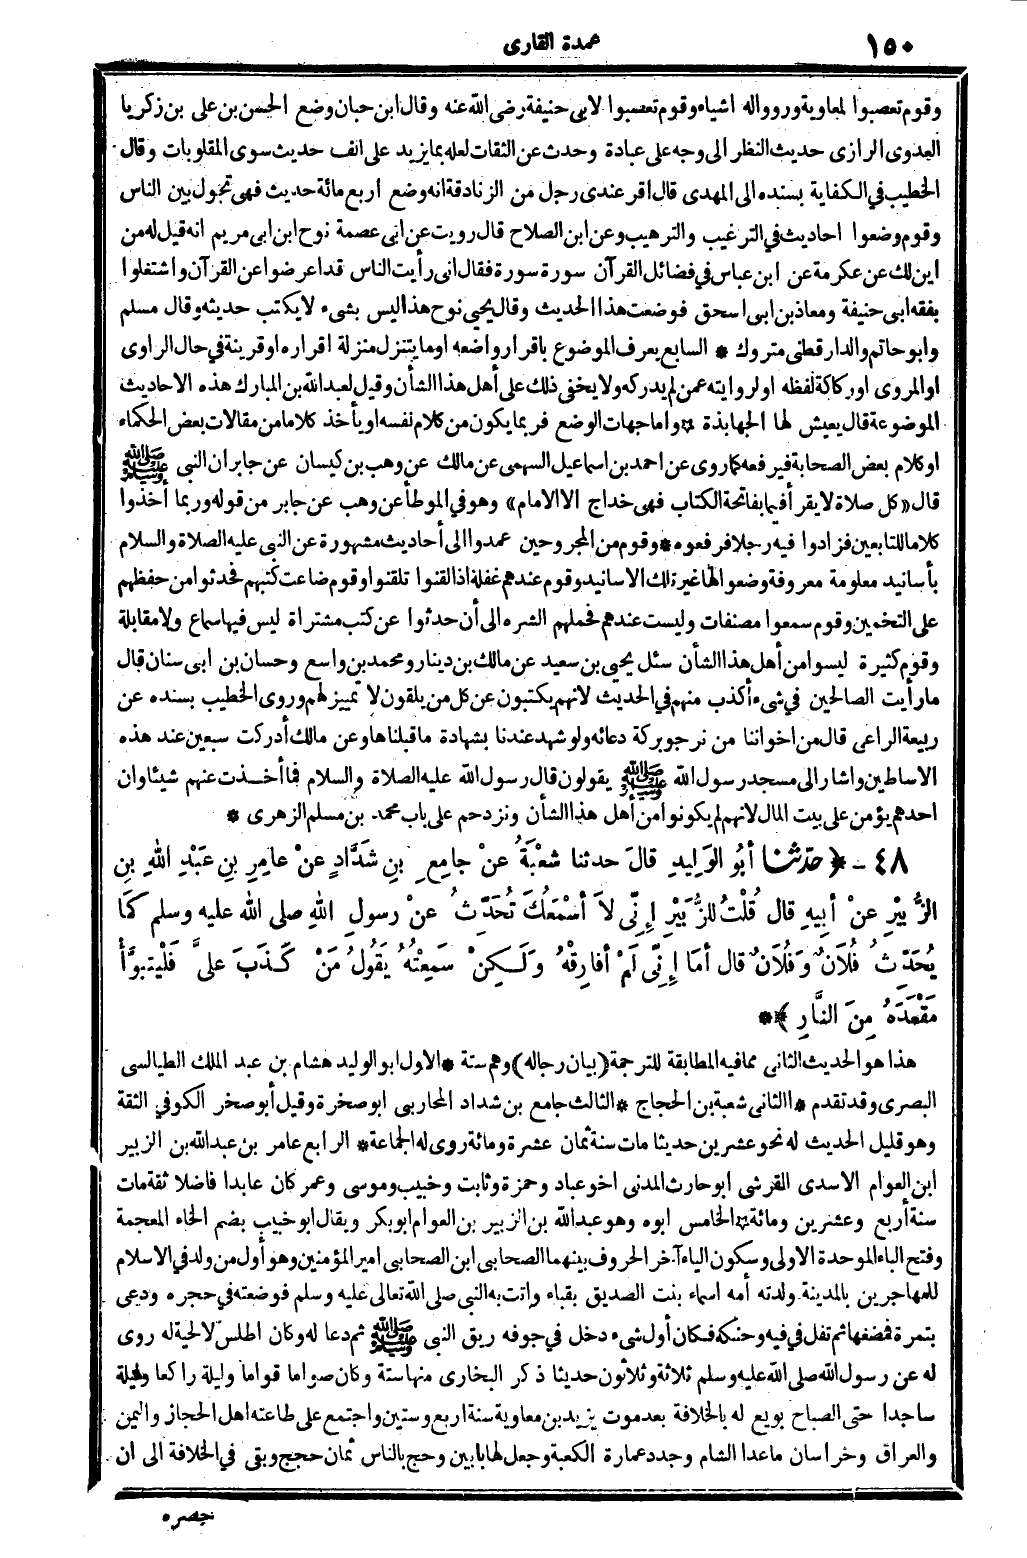 ١٥٠
عمدة القارى
وقوم تعصبوا لمعاوية ورووا له اشياء وقوم تعصبوا لابى حنيفة رضى الله عنه وقال ابن حبان وضع الحسن بن على بن زكريا
العدوى الرازى حديث النظر الى وجه على عبادة وحدث عن الثقات لعله بما يزيد على الف حديث سوى المقلوبات وقال
الخطيب في الكفاية بسنده الى المهدى قال اقر عندى رجل من الزنادقة انه وضع اربع مائة حديث فهى تجول بين الناس
وقوم وضعوا احاديث في الترغيب والترهيب وعن ابن الصلاح قال رويت عن ابى عصمة نوح ابن ابى مريم انه قيل له من
اين لك عن عكرمة عن ابن عباس في فضائل القرآن سورة سورة فقال انى رأيت الناس قد اعرضوا عن القرآن واشتغلوا
بفقه ابى حنيفة ومعاذ بن ابى اسحق فوضعت هذا الحديث وقال يحيى نوح هذا ليس بشىء لا يكتب حديثه وقال مسلم
وابو حاتم والدارقطنى متروك * السابع يعرف الموضوع باقرار واضعه او ما يتنزل منزلة اقراره او قرينة في حال الراوى
او المروى او ركاكة لفظه او لروايته عمن لم يدركه ولا يخفى ذلك على أهل هذا الشأن وقيل لعبد الله بن المبارك هذه الاحاديث
الموضوعة قال يعيش لها الجهابذة * واما جهات الوضع فربما يكون من كلام نفسه او يأخذ كلاما من مقالات بعض الحكماء
او كلام بعض الصحابة فيرفعه كما روى عن احمد بن اسماعيل السهمى عن مالك عن وهب بن كيسان عن جابر ان النبى ﷺ
قال «كل صلاة لا يقرأ فيها بفاتحة الكتاب فهى خداج الا الامام» وهو في الموطأ عن وهب عن جابر من قوله وربما أخذوا
كلاما للتابعين فزادوا فيه رجلا فرفعوه * وقوم من المجروحين عمدوا الى أحاديث مشهورة عن النبى عليه الصلاة والسلام
بأسانيد معلومة معروفة وضعوا لها غير تلك الاسانيد وقوم عندهم غفلة اذا لقنوا تلقنوا وقوم ضاعت كتبهم فحدثوا من حفظهم
على التخمين وقوم سمعوا مصنفات وليست عندهم فحملهم الشره الى أن حدثوا عن كتب مشتراة ليس فيها سماع ولا مقابلة
وقوم كثيرة ليسوا من أهل هذا الشأن سئل يحيى بن سعيد عن مالك بن دينار ومحمد بن واسع وحسان بن ابى سنان قال
مارأيت الصالحين في شىء أكذب منهم في الحديث لانهم يكتبون عن كل من يلقون لا تمييز لهم وروى الخطيب بسنده عن
ربيعة الراعى قال من اخواننا من نرجو بركة دعائه ولو شهد عندنا بشهادة ما قبلناها وعن مالك أدركت سبعين عند هذه
الاساطين واشار الى مسجد رسول الله ﷺ يقولون قال رسول الله عليه الصلاة والسلام فما أخذت عنهم شيئا وان
احدهم يؤمن على بيت المال لانهم لم يكونوا من أهل هذا الشأن ونزدحم على باب محمد بن مسلم الزهرى *
٤٨ - ﴿ حَدَّثَنَا أَبُو الوَلِيدِ قالَ حدثنا شعْبَةُ عنْ جامِعِ بنِ شَدَّادٍ عنْ عامِرِ بنِ عَبْدِ اللهِ بنِ
الزُّبيْرِ عنْ أبِيهِ قال قُلْتُ للزُّبَيْرِ إنِّى لاَ أسْمَعُكَ تُحَدِّثُ عنْ رسولِ اللهِ صلى الله عليه وسلم كَمَا
يُحَدِّثُ فُلَانٌ وَفُلَانٌ قال أمَا إنِّى لَمْ أفارِقْهُ وَلَـكِنْ سَمِعْتُهُ يَقُولُ مَنْ كَذَبَ علىَّ فَلْيتبوَّأْ
مَقْعَدَهُ مِنَ النَّارِ ﴾ *
هذا هو الحديث الثانى مما فيه المطابقة للترجمة (بيان رجاله) وهم ستة * الاول ابو الوليد هشام بن عبد الملك الطيالسى
البصرى وقد تقدم * الثانى شعبة بن الحجاج * الثالث جامع بن شداد المحاربى ابو صخرة وقيل أبو صخر الكوفي الثقة
وهو قليل الحديث له نحو عشرين حديثا مات سنة ثمان عشرة ومائة روى له الجماعة * الرابع عامر بن عبد الله بن الزبير
ابن العوام الاسدى القرشى ابو حارث المدنى اخو عباد وحمزة وثابت وخبيب وموسى وعمر كان عابدا فاضلا ثقة مات
سنة أربع وعشرين ومائة * الخامس ابوه وهو عبد الله بن الزبير بن العوام ابو بكر ويقال ابو خبيب بضم الخاء المعجمة
وفتح الباء الموحدة الاولى وسكون الياء آخر الحروف بينهما الصحابى ابن الصحابى امير المؤمنين وهو أول من ولد في الاسلام
للمهاجرين بالمدينة ولدته أمه اسماء بنت الصديق بقباء واتت به النبى صلى الله تعالى عليه وسلم فوضعته في حجره ودعى
بتمرة فمضغها ثم تفل في فيه وحنكه فكان أول شىء دخل في جوفه ريق النبى ﷺ ثم دعا له وكان اطلس لا لحية له روى
له عن رسول الله صلى الله عليه وسلم ثلاثة وثلاثون حديثا ذكر البخارى منها ستة وكان صواما قواما وليلة راكعا وليلة
ساجدا حتى الصباح بويع له بالخلافة بعد موت يزيد بن معاوية سنة اربع وستين واجتمع على طاعته اهل الحجاز واليمن
والعراق وخراسان ماعدا الشام وجدد عمارة الكعبة وجعل لها بابين وحج بالناس ثمان حجج وبقى في الخلافة الى ان
حصره